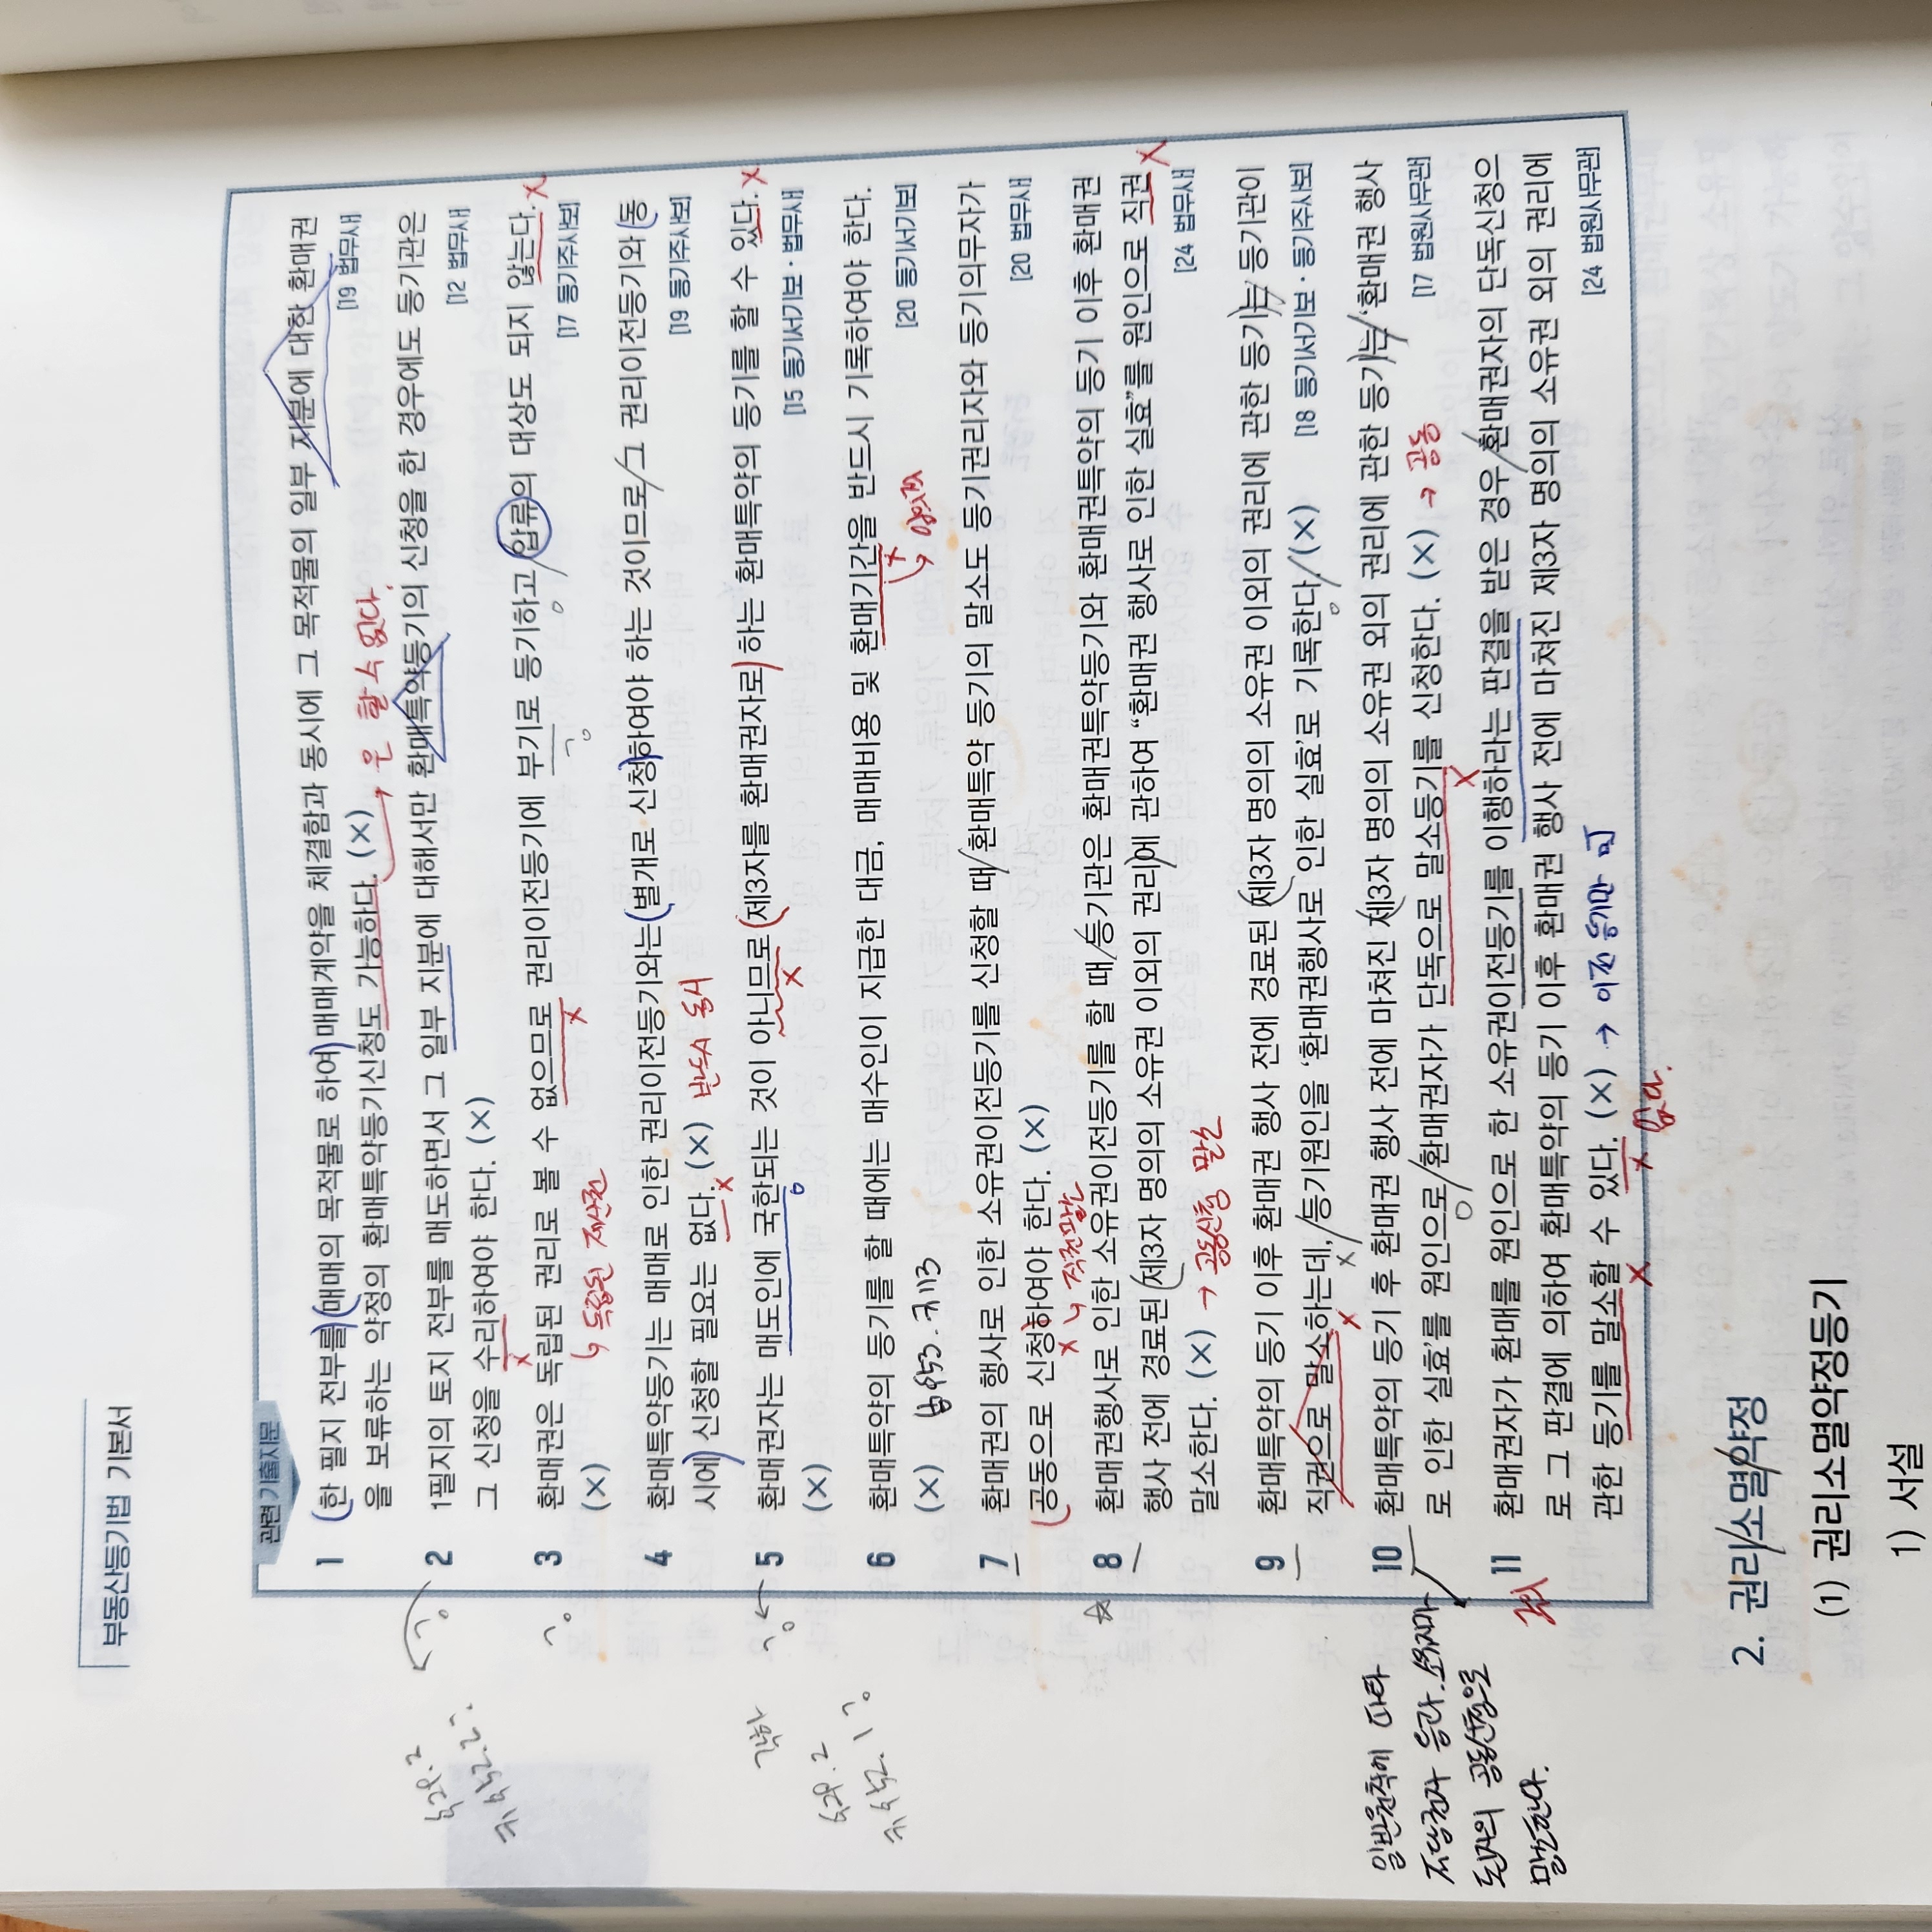 부동산등기법 기본서
관련 기출지문
1 한 필지 전부를 매매의 목적물로 하여 매매계약을 체결함과 동시에 그 목적물의 일부 지분에 대한 환매권
을 보류하는 약정의 환매특약등기신청도 가능하다. (×) [19 법무새]
은 할 수 없다.
2 1필지의 토지 전부를 매도하면서 그 일부 지분에 대해서만 환매특약등기의 신청을 한 경우에도 등기관은
그 신청을 수리하여야 한다. (×) [12 법무새]
3 환매권은 독립된 권리로 볼 수 없으므로 권리이전등기에 부기로 등기하고 압류의 대상도 되지 않는다.
(×) [17 등기주사보]
독립된 재산권
4 환매특약등기는 매매로 인한 권리이전등기와는 별개로 신청하여야 하는 것이므로 그 권리이전등기와 동
시에 신청할 필요는 없다. (×) 반드시 동시 [19 등기주사보]
5 환매권자는 매도인에 국한되는 것이 아니므로 제3자를 환매권자로 하는 환매특약의 등기를 할 수 있다.
(×) [15 등기서기보·법무새]
6 환매특약의 등기를 할 때에는 매수인이 지급한 대금, 매매비용 및 환매기간을 반드시 기록하여야 한다.
(×) 법053. 규113 임의적 [20 등기서기보]
7 환매권의 행사로 인한 소유권이전등기를 신청할 때 환매특약 등기의 말소도 등기권리자와 등기의무자가
공동으로 신청하여야 한다. (×) [20 법무새]
직권말소
8 환매권행사로 인한 소유권이전등기를 할 때 등기관은 환매권특약등기와 환매권특약의 등기 이후 환매권
행사 전에 경료된 제3자 명의의 소유권 이외의 권리에 관하여 “환매권 행사로 인한 실효”를 원인으로 직권
말소한다. (×) → 공동신청 말소 [24 법무새]
9 환매특약의 등기 이후 환매권 행사 전에 경료된 제3자 명의의 소유권 이외의 권리에 관한 등기는 등기관이
직권으로 말소하는데, 등기원인을 ‘환매권행사로 인한 실효’로 기록한다. (×) [18 등기서기보·등기주사보]
10 환매특약의 등기 후 환매권 행사 전에 마쳐진 제3자 명의의 소유권 외의 권리에 관한 등기는 ‘환매권 행사
로 인한 실효’를 원인으로 환매권자가 단독으로 말소등기를 신청한다. (×) → 공동 [17 법원사무관]
11 환매권자가 환매를 원인으로 한 소유권이전등기를 이행하라는 판결을 받은 경우 환매권자의 단독신청으
로 그 판결에 의하여 환매특약의 등기 이후 환매권 행사 전에 마쳐진 제3자 명의의 소유권 외의 권리에
관한 등기를 말소할 수 있다. (×) → 이전등기만 可 [24 법원사무관]
없다.
일반원칙에 따라
말소한다.
2. 권리소멸약정
(1) 권리소멸약정등기
1) 서설